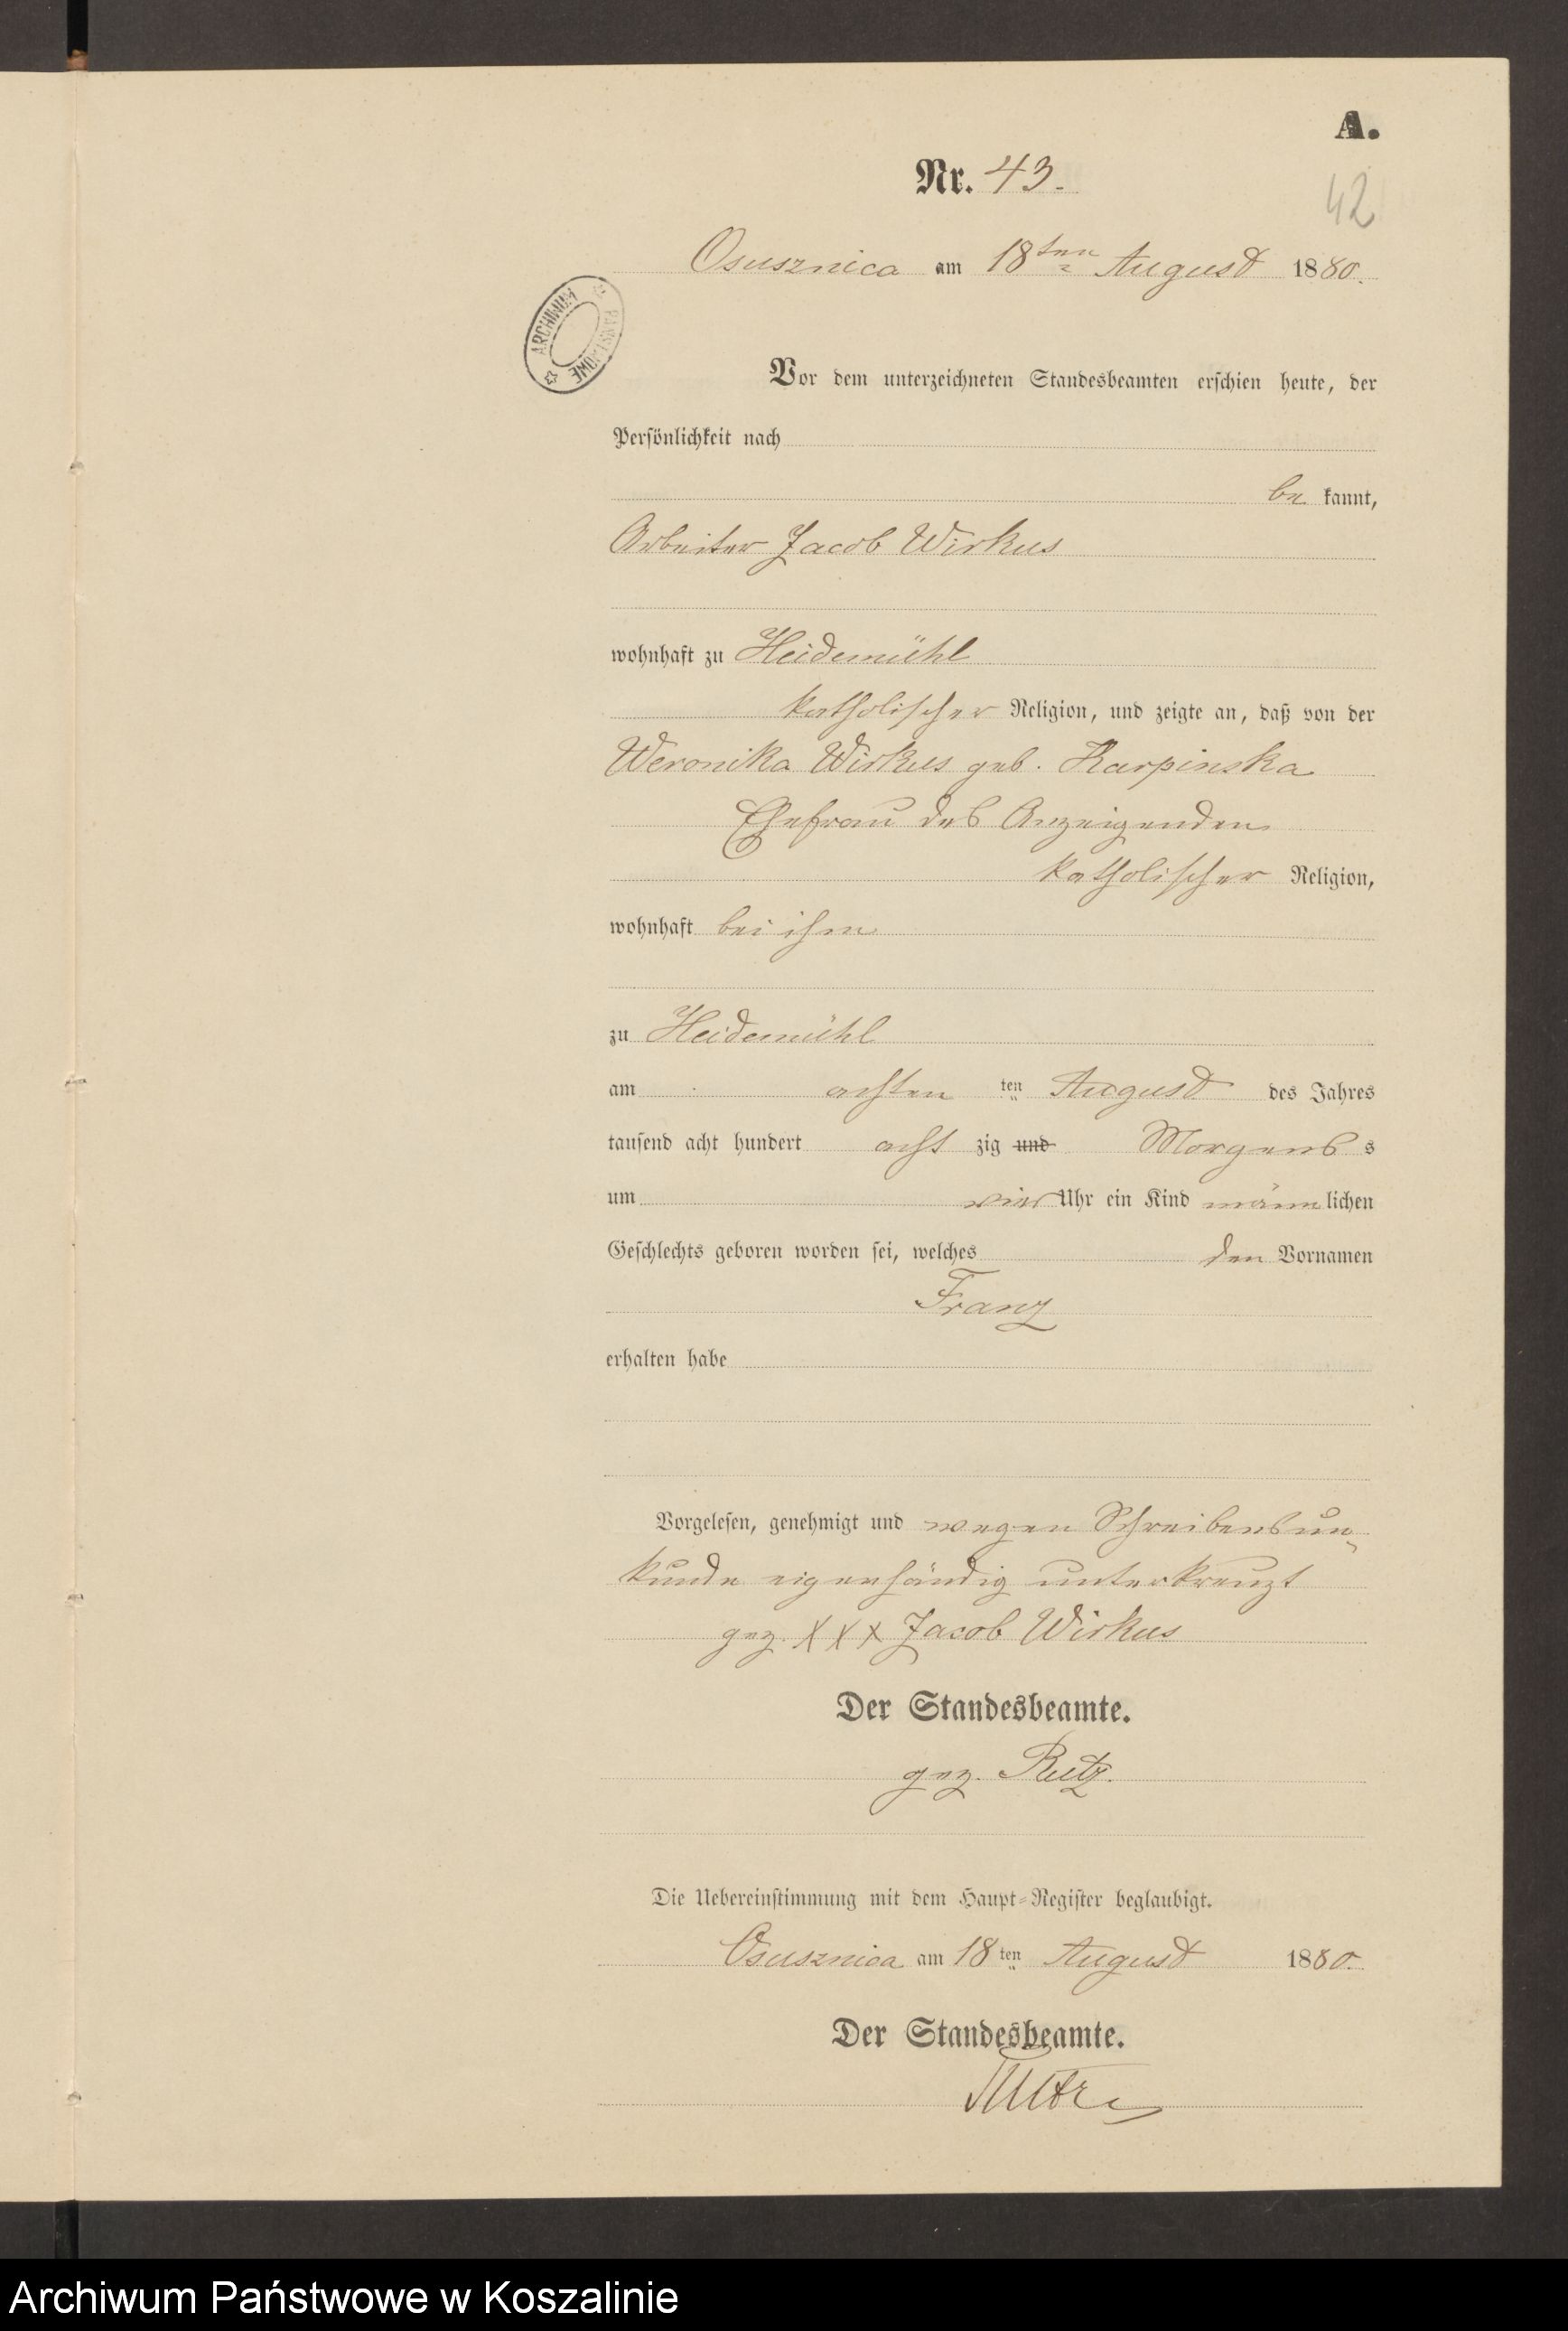 A.
Nr. 43.
42
Osusznica am 18ten August 1880.
ARCHIWUM PAŃSTWOWE
Vor dem unterzeichneten Standesbeamten erschien heute, der
Persönlichkeit nach
be kannt,
Arbeiter Jacob Wirkus
wohnhaft zu Heidemühl
katholischer Religion, und zeigte an, daß von der
Weronika Wirkus geb. Karpinska
Ehefrau des Anzeigenden
katholischer Religion,
wohnhaft bei ihm
zu Heidemühl
am achten ten August des Jahres
tausend acht hundert acht zig und Morgens s
um vier Uhr ein Kind männlichen
Geschlechts geboren worden sei, welches den Vornamen
Franz
erhalten habe
Vorgelesen, genehmigt und wegen Schreibensun-
kunde eigenhändig unterkreuzt
gez. XXX Jacob Wirkus
Der Standesbeamte.
gez. Rutz.
Die Uebereinstimmung mit dem Haupt-Register beglaubigt.
Osusznica am 18ten August 1880.
Der Standesbeamte.
Archiwum Państwowe w Koszalinie